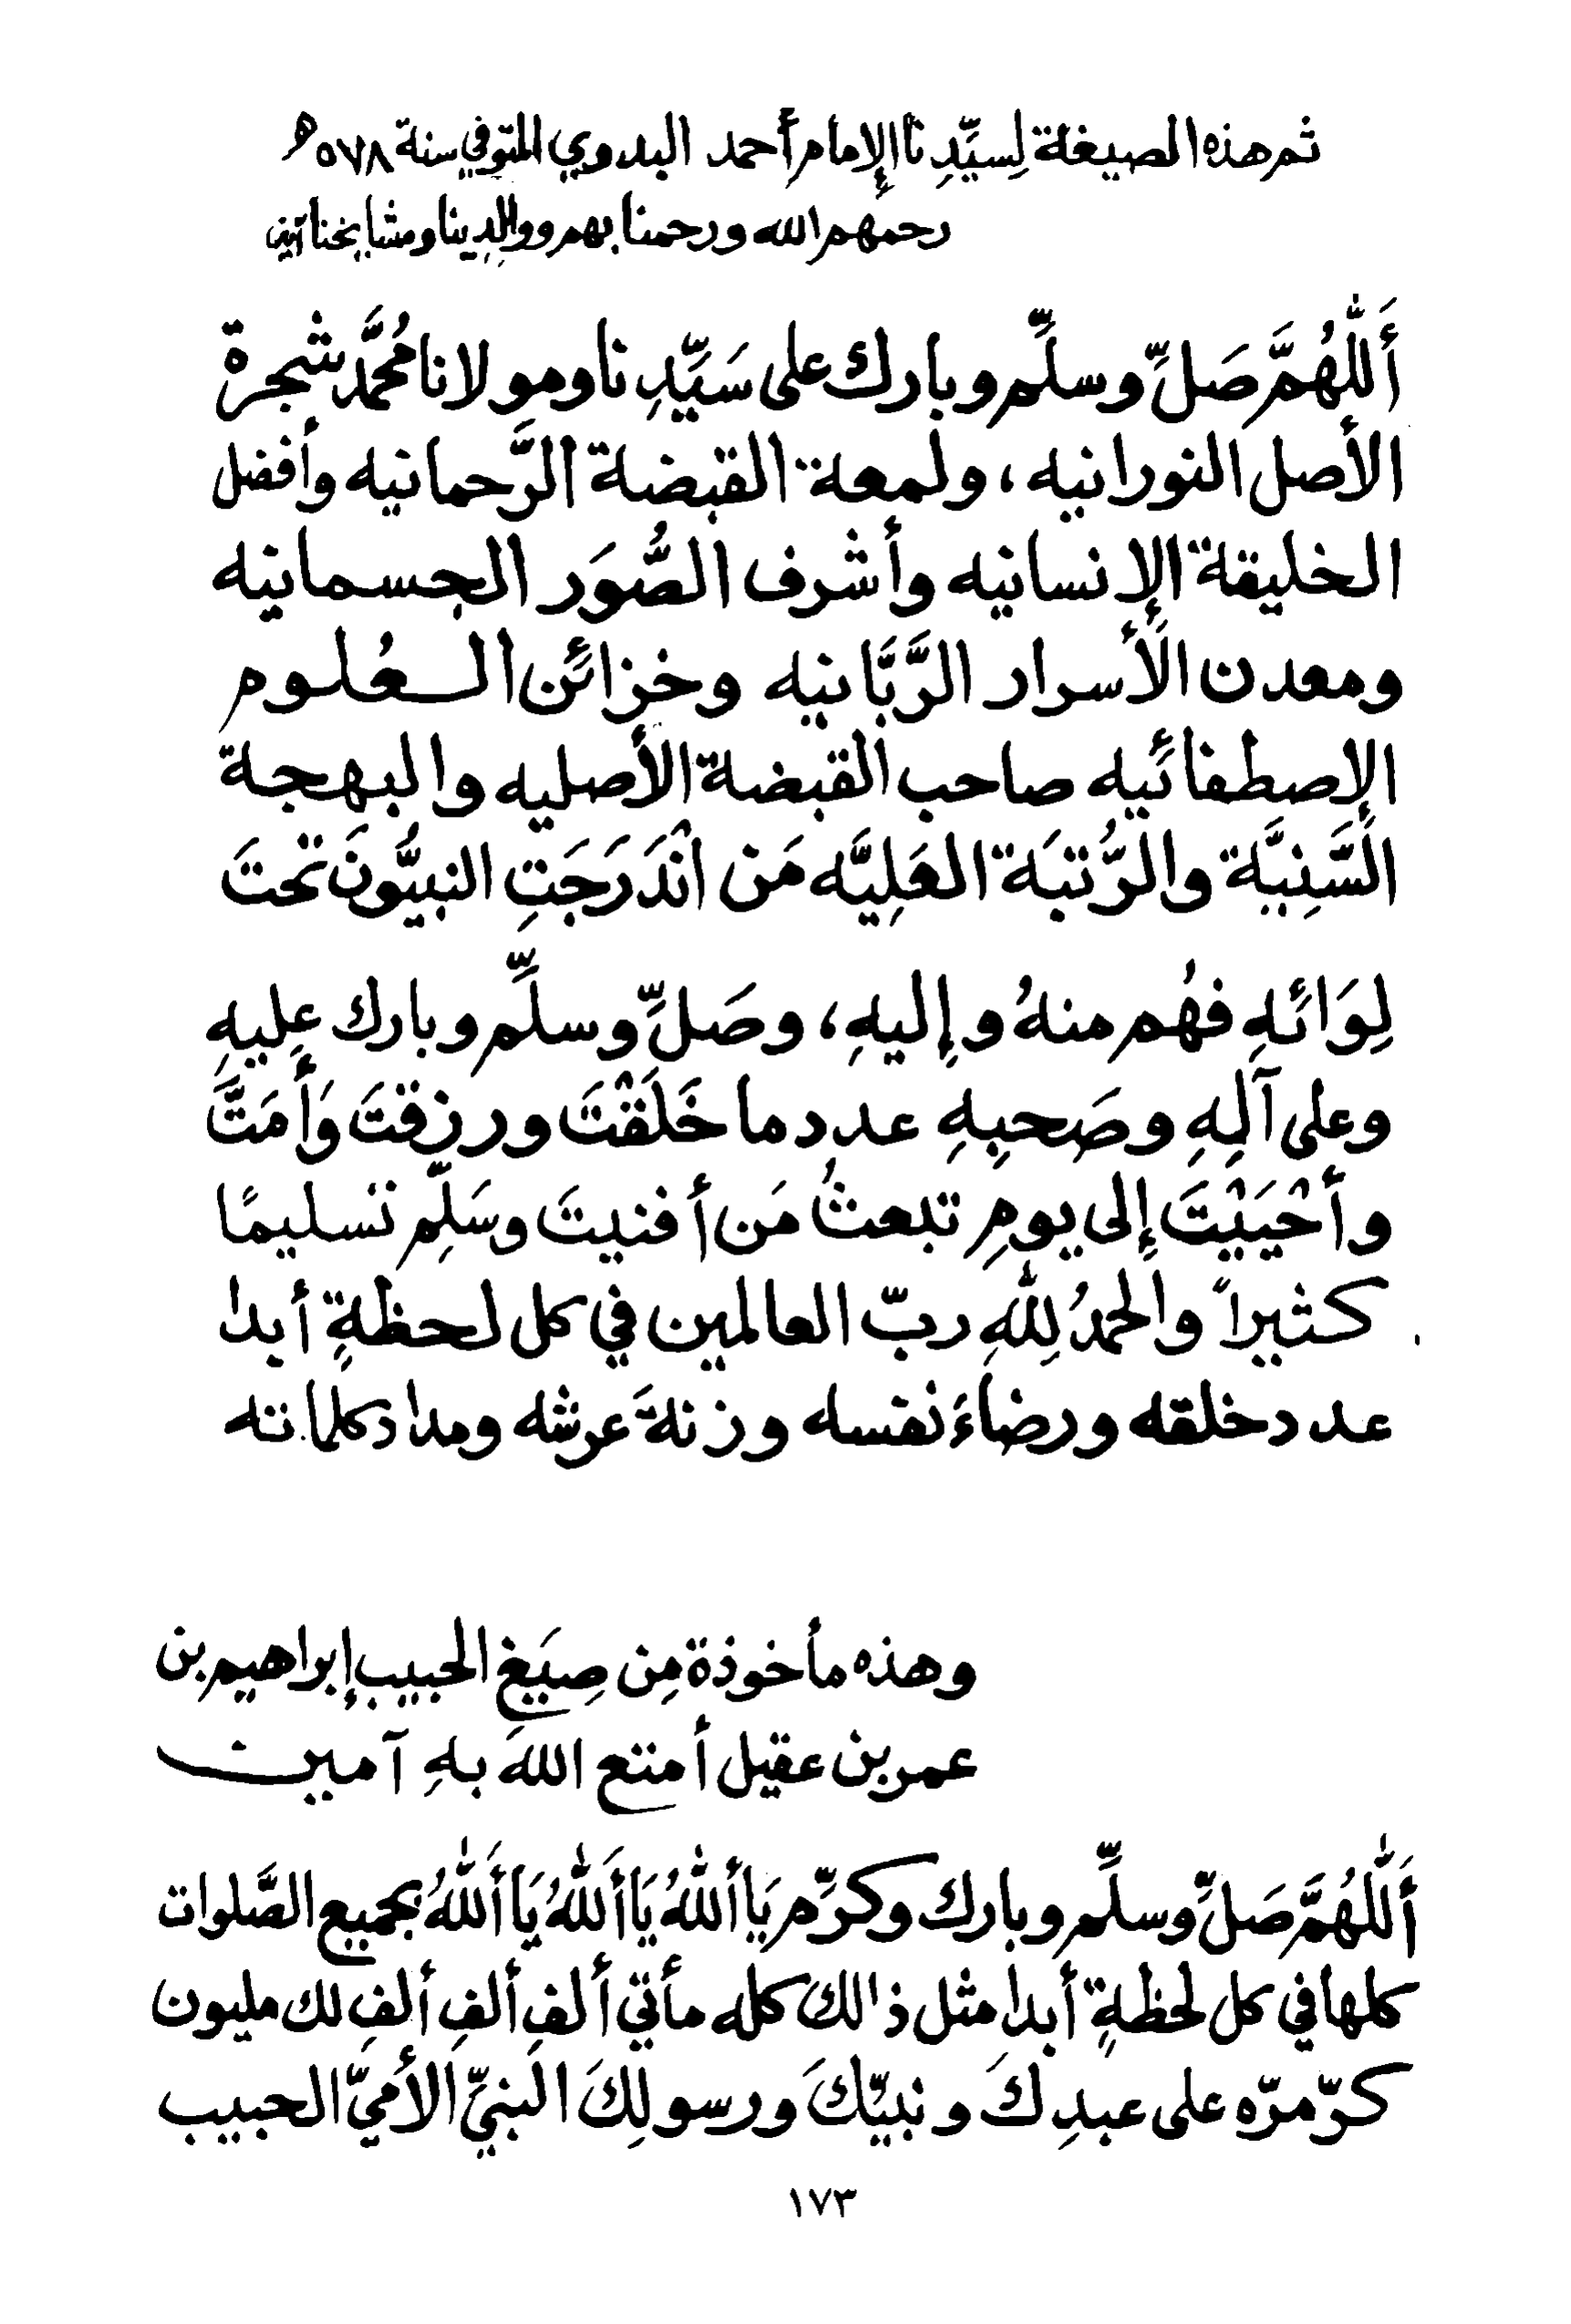 ثم هذه الصيغة لِسيِّدِنا الإمام أحمد البدوي المتوفي سنة ٥٧٨ هـ
رحمهم الله ورحمنا بهم ووالِدِينا ومشايخنا آمين
أَللّٰهُمَّ صَلِّ وسلِّم وبارك على سَيِّدِنا ومولانا مُحَمَّد شجرة
الأصل النورانيه، ولمعة القبضة الرَّحمانيه وأفضل
الخليقة الإنسانيه وأشرف الصُّوَر الجسمانيه
ومعدن الأَسرار الرَّبَّانيه وخزائن العُلوم
الإصطفائيه صاحب القبضة الأصليه والبهجة
السَّنِيَّة والرُّتبَة العَلِيَّه مَن انْدَرَجَتِ النبيُّونَ تحتَ
لِوَائهِ فهُم منهُ وإليهِ، وصَلِّ وسلِّم وبارك عليهِ
وعلى آلِهِ وصَحبِهِ عدد ما خَلَقْتَ ورزقتَ وَأَمَتَّ
وأَحْيَيْتَ إلى يومِ تبعثُ مَن أفنيتَ وسَلِّم تسليمًا
كثيراً والحمدُ لِلّٰهِ ربّ العالمين في كل لحظةٍ أبدا
عدد خلقه ورضاءَ نفسه وزنةَ عرشه ومداد كلماته
وهذه مأخوذة مِن صِيَغ الحبيب إبراهيم بن
عمر بن عقيل أمتع اللهَ بهِ آمين
أَللّٰهُمَّ صَلِّ وسلِّم وبارك وكرِّم يَا أَللّٰهُ يَا أَللّٰهُ يَا أَللّٰهُ بجميع الصَّلوات
كلها في كل لحظةٍ أبدا مثل ذالك كله مأتي ألف ألفِ ألفِ لك مليون
كرّ مرّه على عبدِكَ ونبيّكَ ورسولِكَ النبيِّ الأُميِّ الحبيب
١٧٣